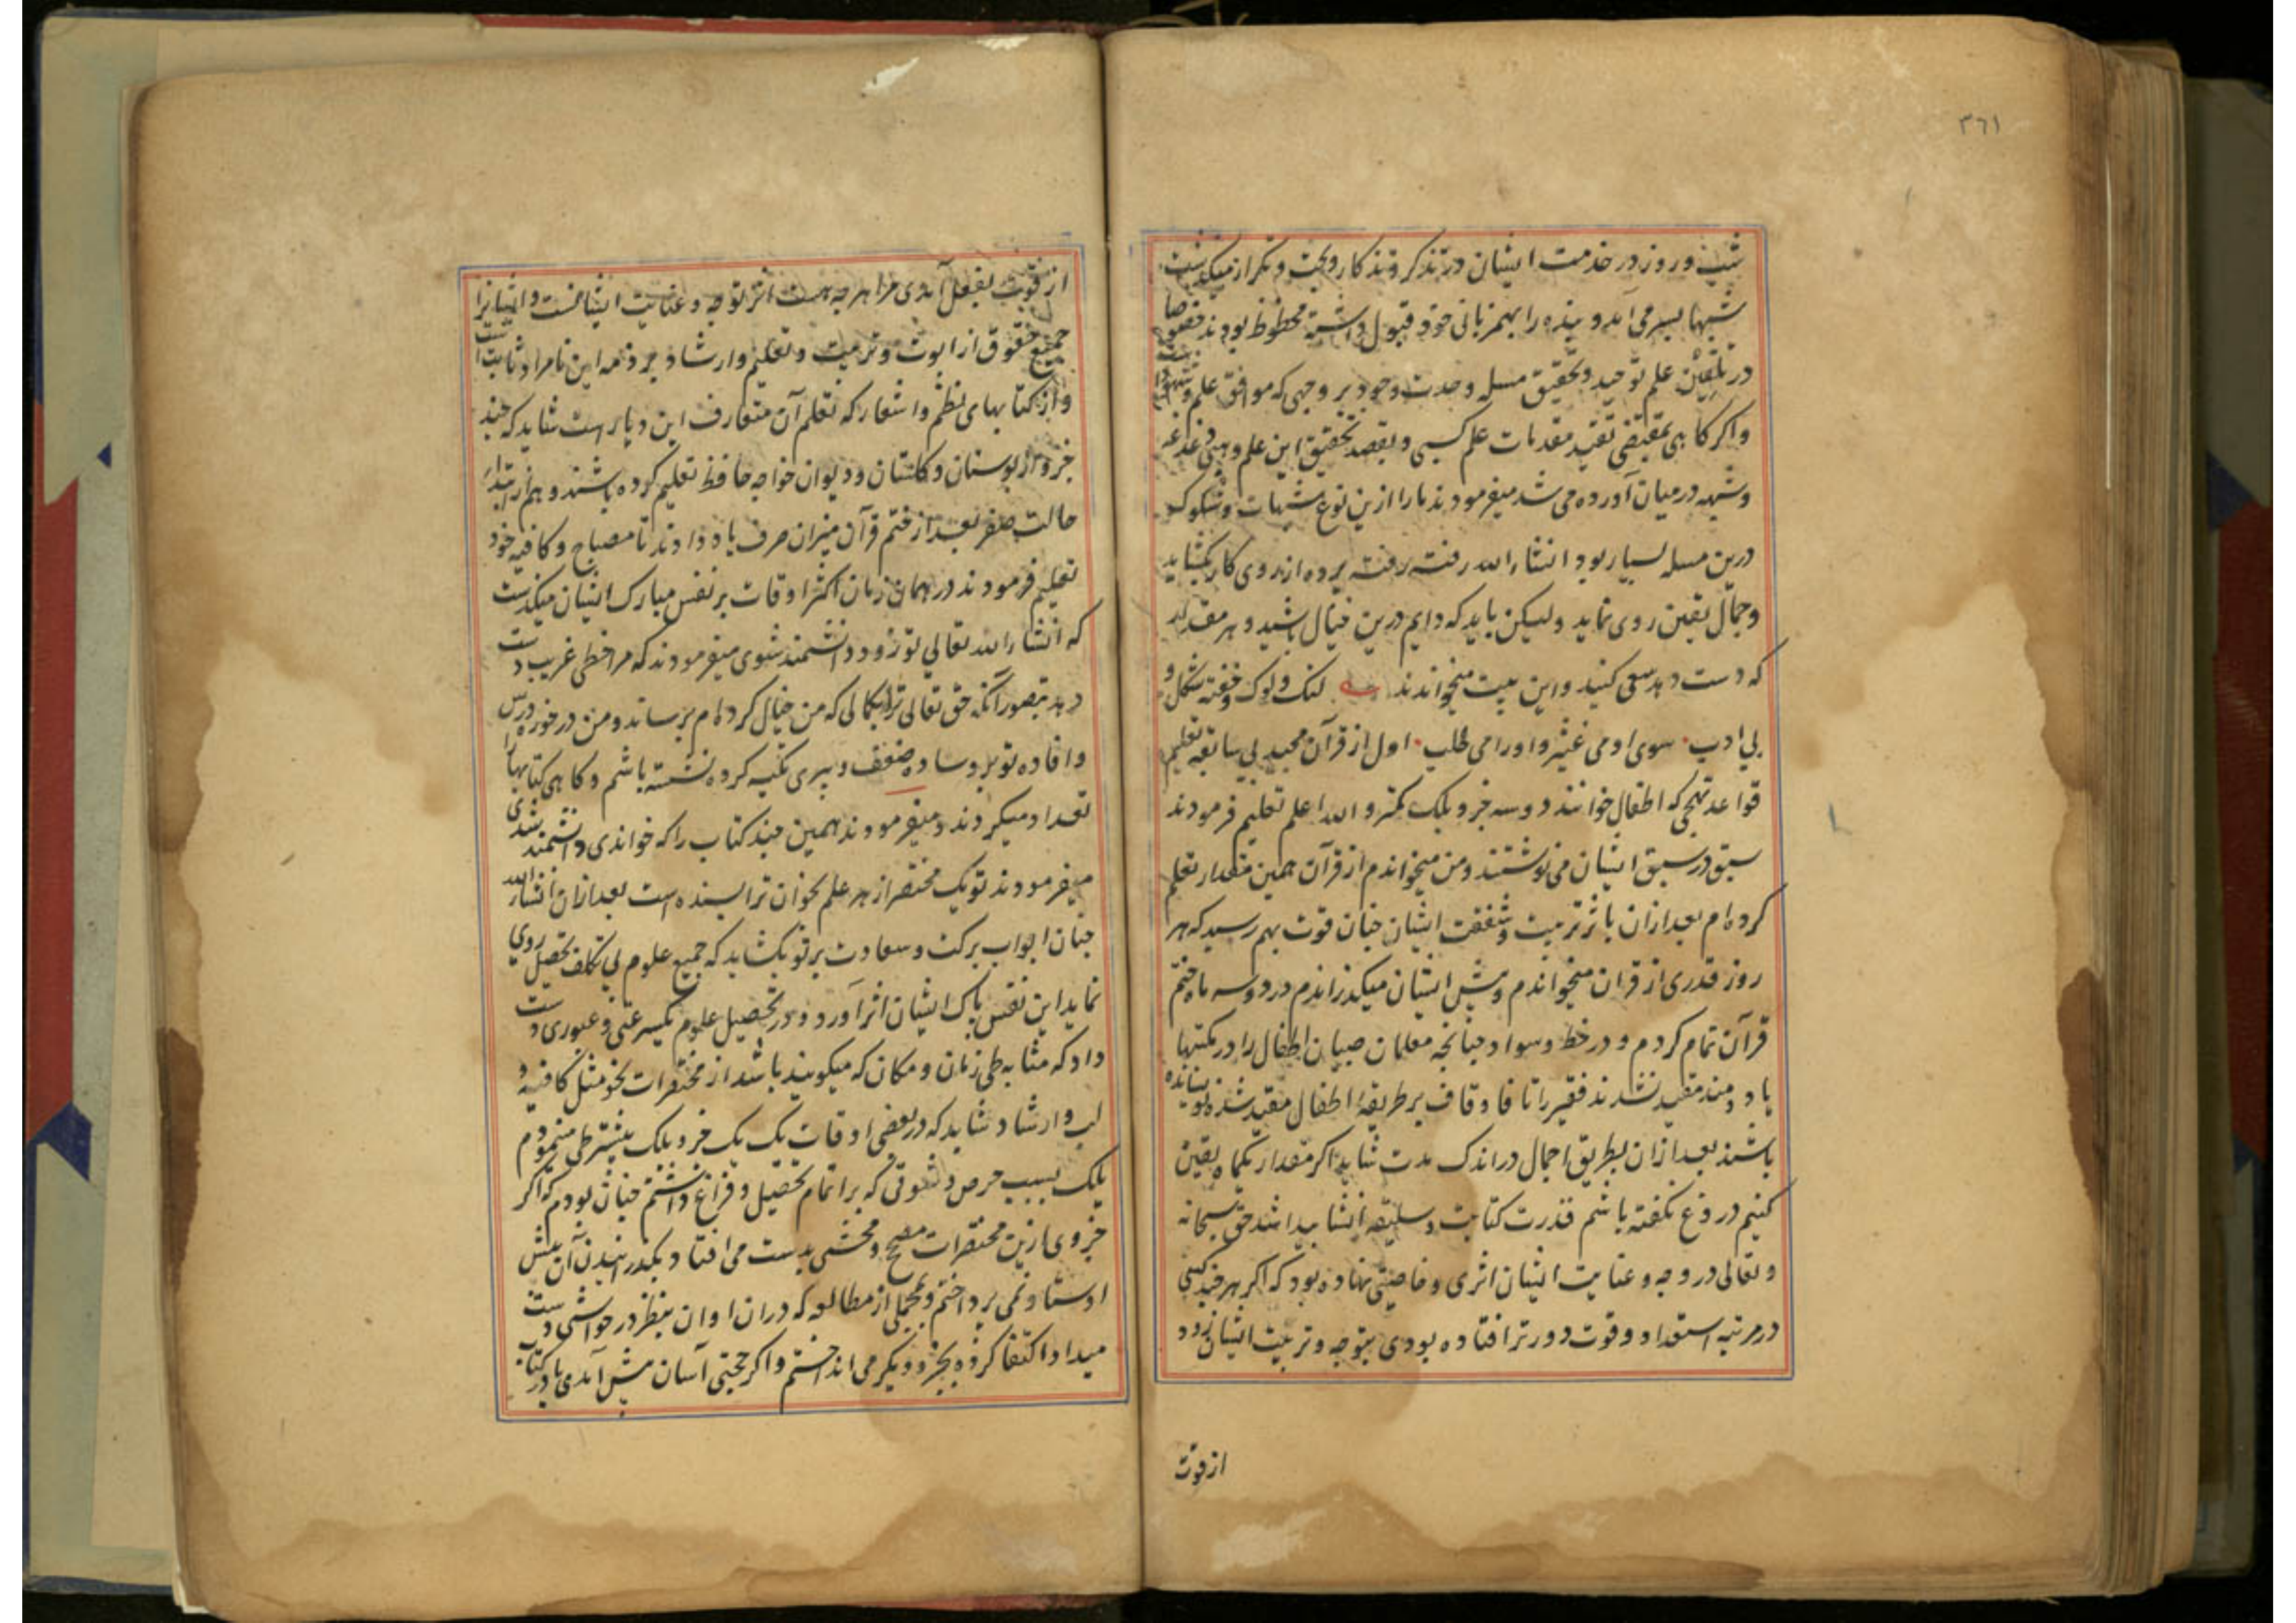 ٣٦١
شب و روز در خدمت ایشان در تذکر و تذکار و بحث و تکرار میگذشت
شبها بسر می آمد و بنده را بهمزبانی خود قبول داشته محظوظ بودند خصوصا
در تلقین علم توحید و تحقیق مسله وحدت وجود بر وجهی که موافق علم و شهود
واکر کاهی بمقتضی تقید مقدمات علم کسبی و بقصد تحقیق این علم وهبی دغدغه
وشبهه درمیان آورده می شد میفرمودند مارا ازین نوع شبهات وشکوک
درین مسله بسیار بود انشاءالله رفته رفته پرده از روی کار بکشاید
وجمال یقین روی نماید ولیکن باید که دایم درین خیال باشید و هر مقدار
که دست دهد سعی کنید و این بیت میخواندند لنک ولوک وخفته شکل و
بی ادب سوی او می غیژ و او را می طلب اول از قرآن مجید بی سابقه تعلیم
قواعد تهجی که اطفال خوانند دوسه جزو بلک کمتر والله اعلم تعلیم فرمودند
سبق درسبق ایشان می نوشتند ومن میخواندم از قرآن همین مقدار تعلم
کرده ام بعد ازان باثر تربیت وشفقت ایشان چنان قوت بهم رسید که هر
روز قدری از قران میخواندم و پیش ایشان میکذراندم در دو سه ماه ختم
قرآن تمام کردم و در خط و سواد چنانچه معلمان صبیان اطفال را در مکتبها
یاد دهند مقید نشدند فقیر را تا فا و قاف بر طریقهٔ اطفال مقید شده نویسانده
باشند بعد ازان بطریق اجمال در اندک مدت شاید اکر مقدار یکماه یقین
کنیم دروغ نکفته باشم قدرت کتابت و سلیقه انشا پیدا شد حق سبحانه
و تعالی در وجه و عنایت ایشان اثری و خاصیتی نهاده بود که اکر هرچند کسی
در مرتبه استعداد و قوت دورتر افتاده بودی بتوجه و تربیت ایشان زود
از قوت
از قوت بفعل آمدی مرا هرچه هست اثر توجه و عنایت ایشانست و ایشانرا
جمیع حقوق از ابوت و تربیت و تعلیم وارشاد بر ذمه این نامراد ثابت است
واز کتابهای نظم واشعار که تعلم آن متعارف این دیار است شاید که چند
جزو از بوستان و کلستان و دیوان خواجه حافظ تعلیم کرده باشند و هم از ابتداء
حالت صغر بعد از ختم قرآن میزان صرف یاد دادند تا مصباح و کافیه خود
تعلیم فرمودند در همان زمان اکثر اوقات بر نفس مبارک ایشان میکذشت
که انشاءالله تعالی تو زود دانشمند شوی میفرمودند که مرا حظی غریب دست
دهد بتصور آنکه حق تعالی ترا بکمالی که من خیال کرده ام برساند و من در حوزه درس
وافاده تو بر وساده ضعف و پیری تکیه کرده نشسته باشم و کاهی کتابها را
تعداد میکردند و میفرمودند همین چند کتاب را که خواندی دانشمند شدی
میفرمودند تو یک مختصر از هر علم بخوان ترا بسنده است بعد ازان انشاءالله
چنان ابواب برکت و سعادت بر تو بکشاید که جمیع علوم بی تکلف تحصیل روی
نماید این نفس پاک ایشان اثر آورد و در تحصیل علوم عبوری دست
داد که مثابه طی زمان و مکان که میکویند باشد از مختصرات نحو مثل کافیه و
لب و ارشاد شاید که در بعضی اوقات یک یک جزو بلک بیشتر طی مینمودم
بلک بسبب حرص و شوقی که بر اتمام تحصیل و فراغ داشتم چنان بودم که اکر
جزوی ازین مختصرات مصحح و محشی بدست می افتاد بکذرانیدن آن پیش
اوستاد نمی پرداختم و بمجملی از مطالعه که دران اوان بنظر در حواشی دست
میداد اکتفا کرده بجزو دیکر می انداختم واکر بحثی آسان پیش آمدی یا در کتاب